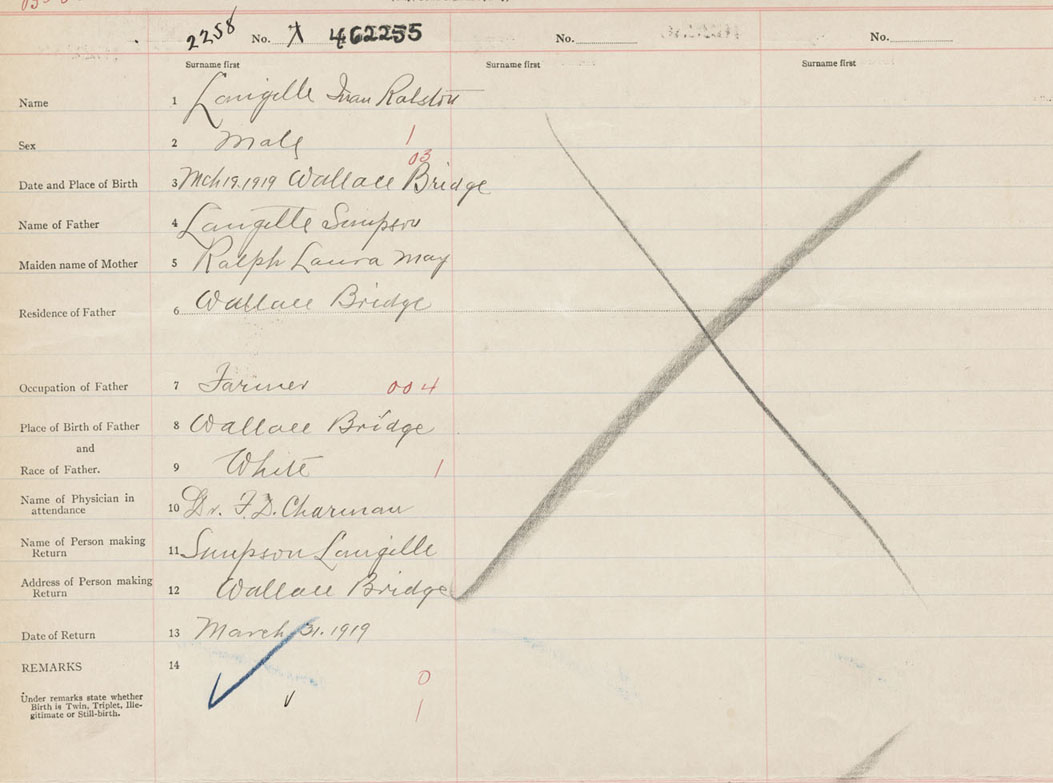 2258 No. X 462255 No. No.
Surname first Surname first Surname first
Name 1 Langille Ivan Ralston
Sex 2 Male 1
03
Date and Place of Birth 3 Mch 19.1919 Wallace Bridge
Name of Father 4 Langille Simpson
Maiden name of Mother 5 Ralph Laura May
Residence of Father 6 Wallace Bridge
Occupation of Father 7 Farmer 004
Place of Birth of Father 8 Wallace Bridge
and
Race of Father. 9 White 1
Name of Physician in
attendance 10 Dr. F.D. Charman
Name of Person making
Return 11 Simpson Langille
Address of Person making
Return 12 Wallace Bridge
Date of Return 13 March 31. 1919
REMARKS 14
0
Under remarks state whether
Birth is Twin, Triplet, Ille-
gitimate or Still-birth. 1